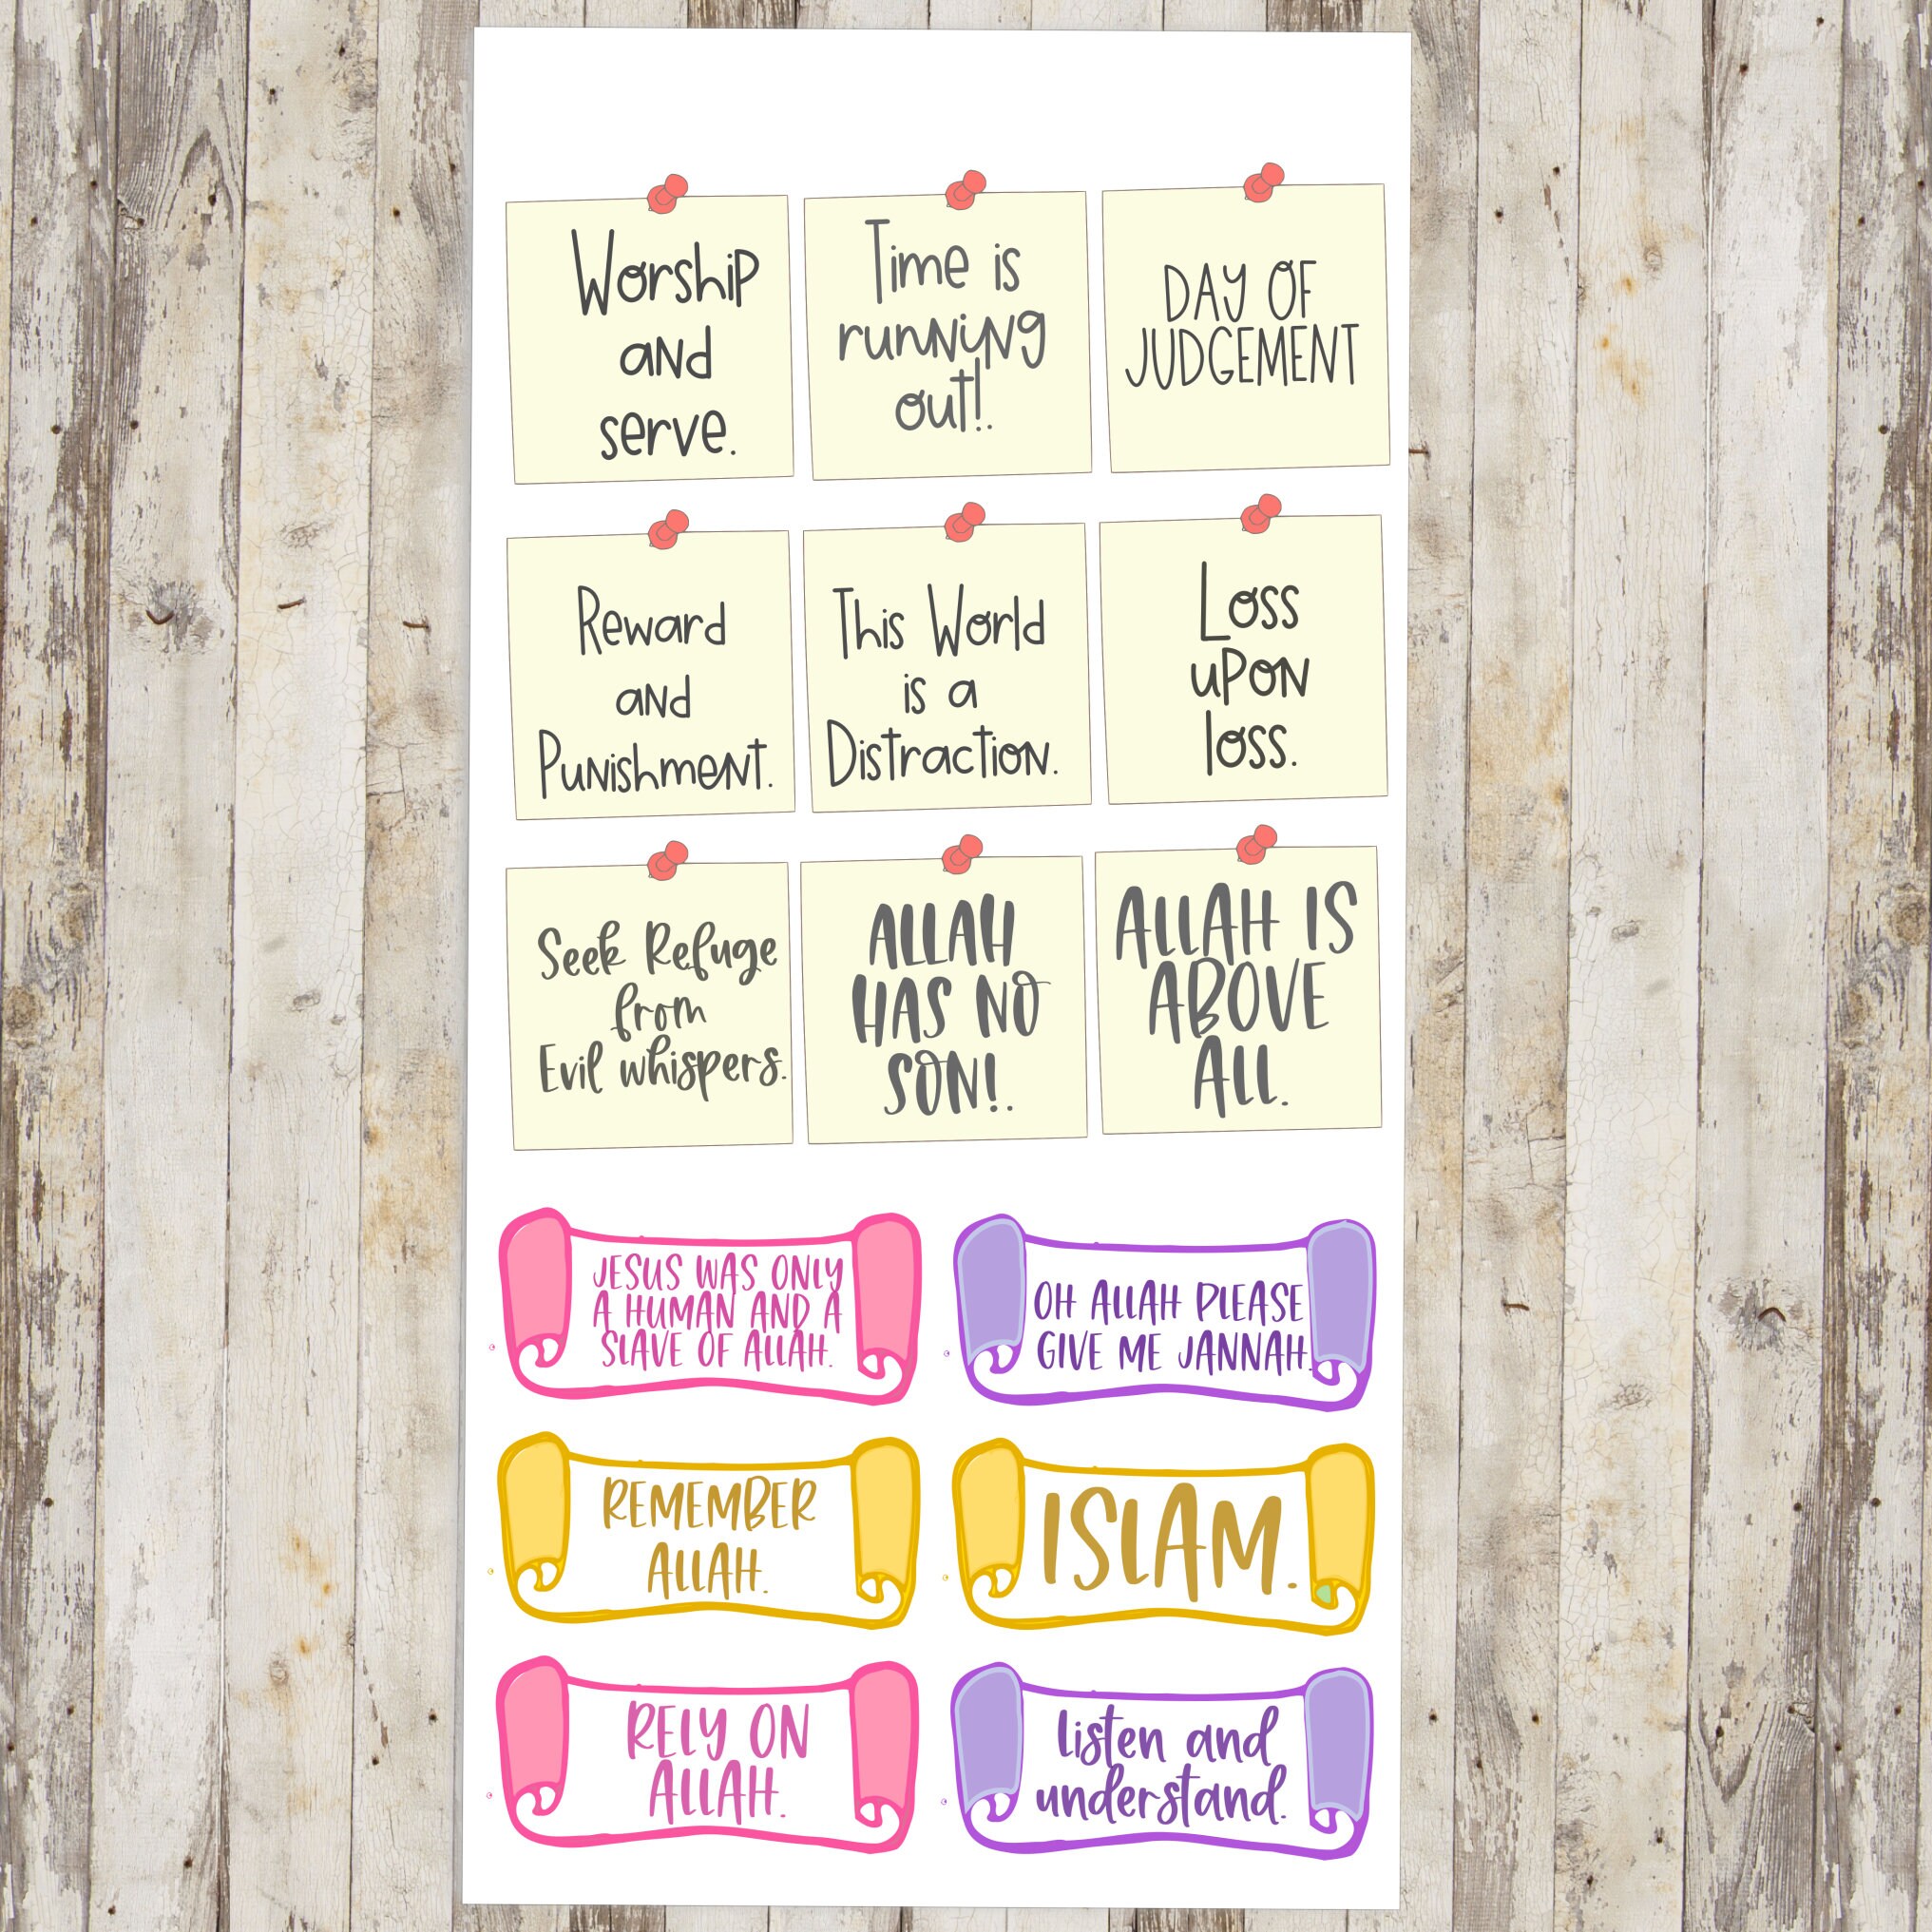 Worship
and
serve.
Time is
running
out!.
DAY OF
JUDGEMENT
Reward
and
Punishment.
This World
is a
Distraction.
Loss
upon
loss.
Seek Refuge
from
Evil whispers.
ALLAH
HAS NO
SON!.
ALLAH IS
ABOVE
ALL.
JESUS WAS ONLY
A HUMAN AND A
SLAVE OF ALLAH.
OH ALLAH PLEASE
GIVE ME JANNAH.
REMEMBER
ALLAH.
ISLAM.
RELY ON
ALLAH.
listen and
understand.